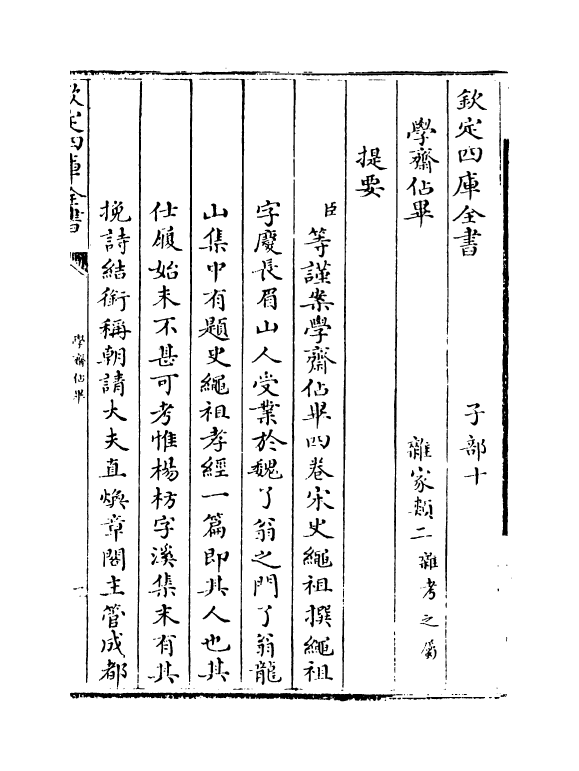 欽定四庫全書　子部十
學齋佔畢　雜家類二雜考之屬
提要
臣等謹案學齋佔畢四卷宋史繩祖撰繩祖
字慶長眉山人受業於魏了翁之門了翁龍
山集中有題史繩祖孝經一篇即其人也其
仕履始末不甚可考惟楊枋字溪集末有其
挽詩結銜稱朝請大夫直煥章閣主管成都
欽定四庫全書
學齋佔畢
一